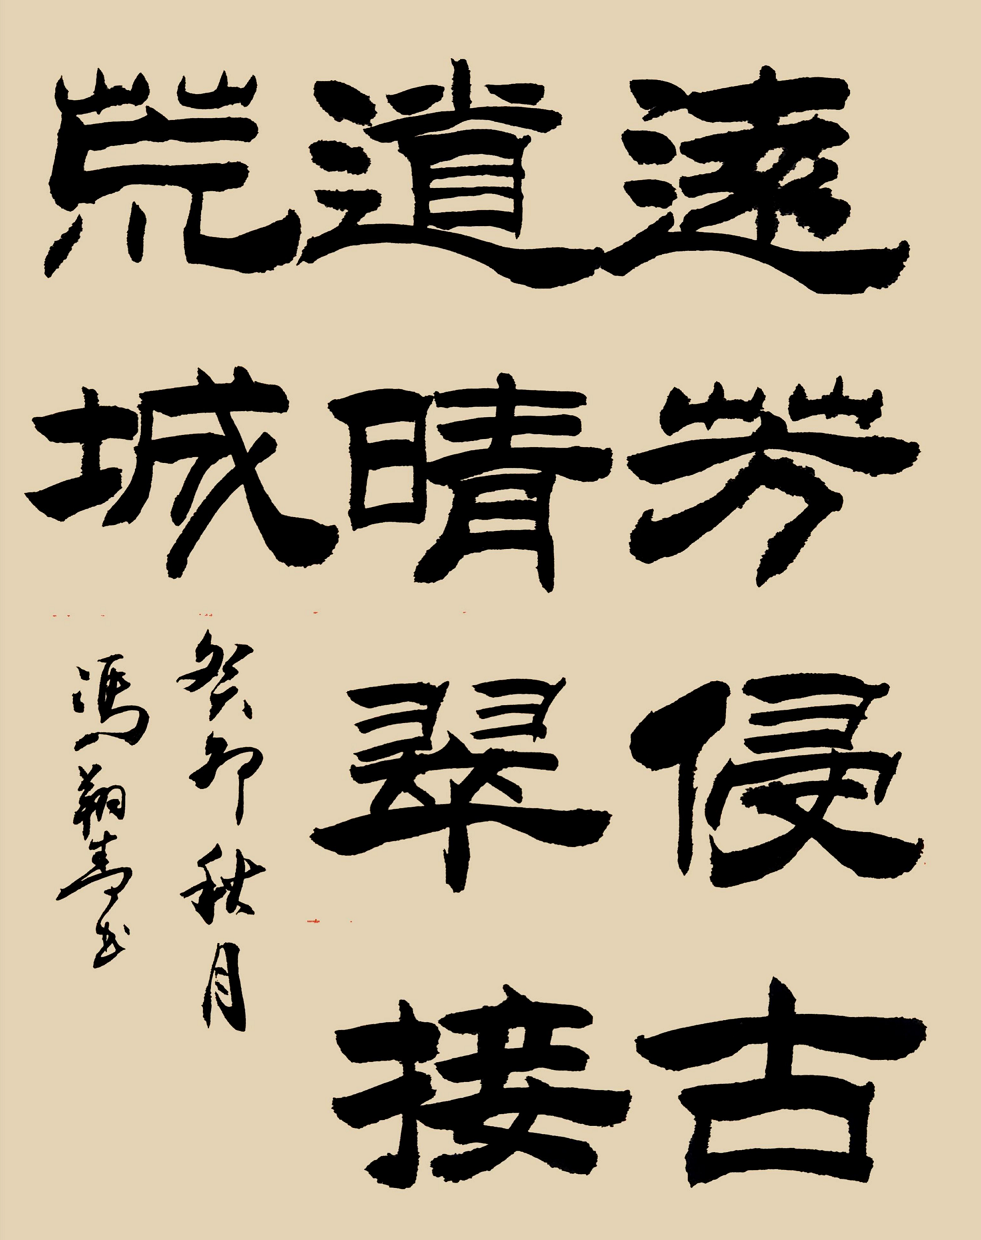 遠芳侵古
道晴翠接
荒城
癸卯秋月
馮翔書